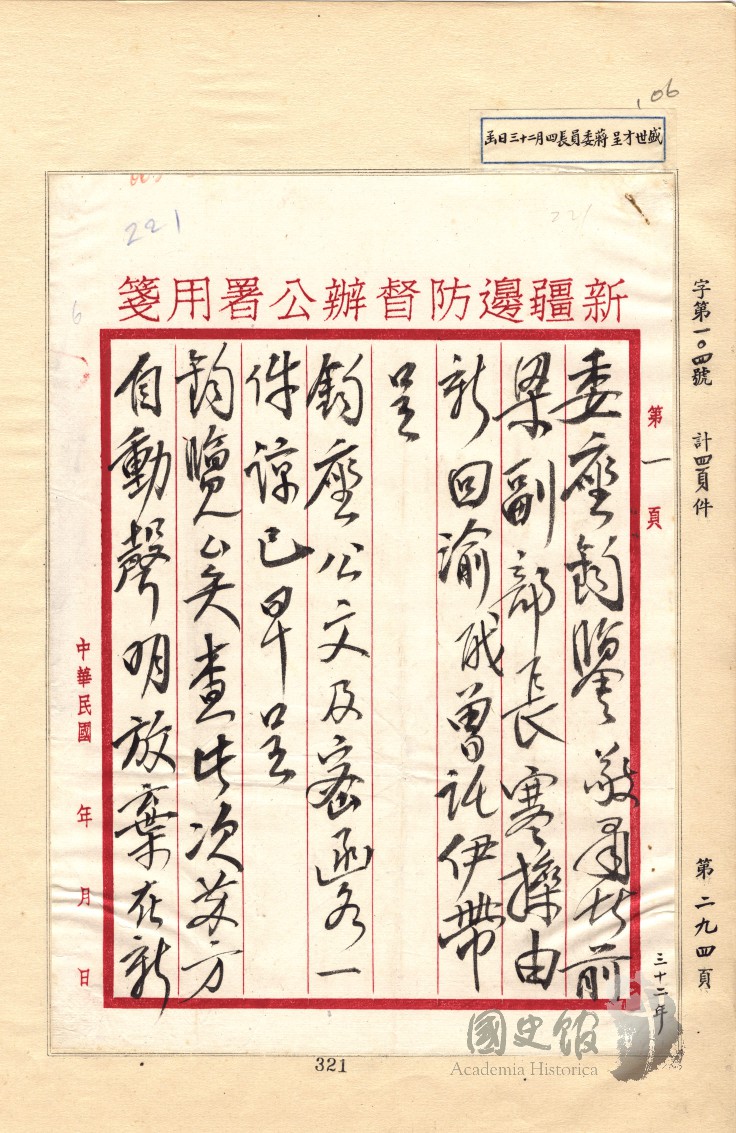 106
盛世才呈蔣委員長四月二十三日函
221
221
新疆邊防督辦公署用箋
字第一〇四號 計四頁件
第二九四頁
第一頁
三十二年
委座鈞鑒敬肅者前
梁副部長寒操由
新回渝職曾託伊帶
呈
鈞座公文及密函各一
件諒已早呈
鈞覽矣查此次友方
自動聲明放棄在新
中華民國 年 月 日
6
321
國史館
Academia Historica